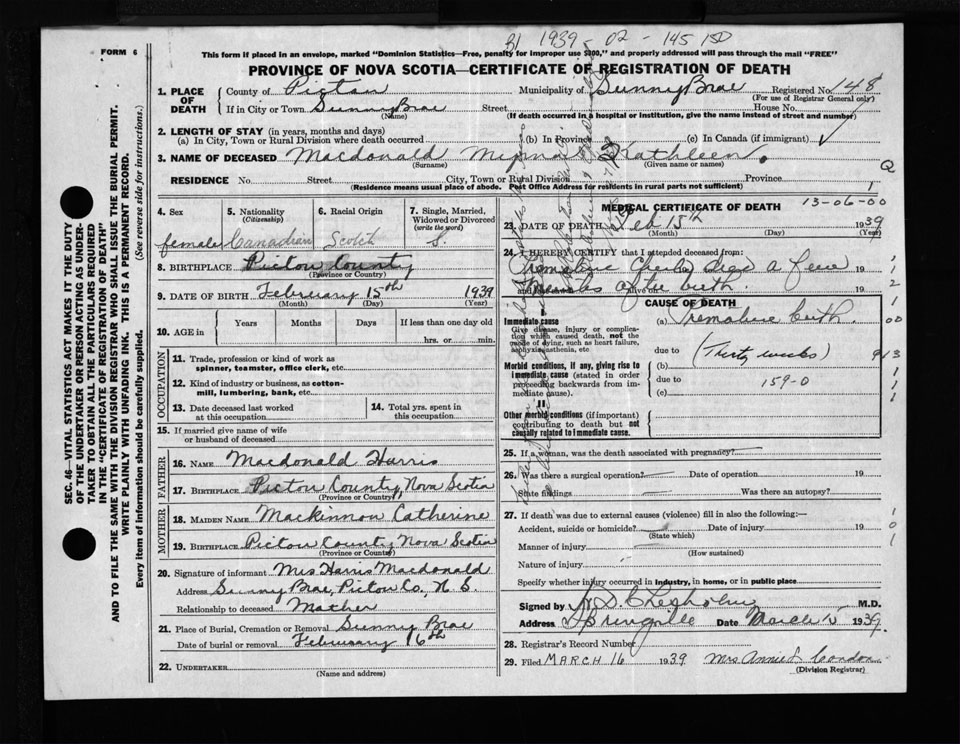 B1 1939 - 02 - 145150
FORM 6
This form if placed in an envelope, marked "Dominion Statistics—Free, penalty for improper use $300," and properly addressed will pass through the mail "FREE"
PROVINCE OF NOVA SCOTIA—CERTIFICATE OF REGISTRATION OF DEATH
SEC. 46—VITAL STATISTICS ACT MAKES IT THE DUTY
OF THE UNDERTAKER OR PERSON ACTING AS UNDER-
TAKER TO OBTAIN ALL THE PARTICULARS REQUIRED
IN THE "CERTIFICATE OF REGISTRATION OF DEATH"
AND TO FILE THE SAME WITH THE DIVISION REGISTRAR WHO SHALL ISSUE THE BURIAL PERMIT.
WRITE PLAINLY WITH UNFADING INK. THIS IS A PERMANENT RECORD.
Every item of information should be carefully supplied. (See reverse side for instructions.)
1. PLACE OF DEATH
County of Pictou Municipality of Sunny Brae Registered No. 148
(For use of Registrar General only)
If in City or Town Sunny Brae Street House No.
(Name) (If death occurred in a hospital or institution, give the name instead of street and number)
2. LENGTH OF STAY (in years, months and days)
(a) In City, Town or Rural Division where death occurred (b) In Province (c) In Canada (if immigrant)
3. NAME OF DECEASED Macdonald Myrna Kathleen.
(Surname) (Given name or names)
RESIDENCE No. Street City, Town or Rural Division Province
(Residence means usual place of abode. Post Office Address for residents in rural parts not sufficient)
4. Sex 5. Nationality 6. Racial Origin 7. Single, Married,
(Citizenship) Widowed or Divorced
(write the word)
female Canadian Scotch S.
8. BIRTHPLACE Pictou County
(Province or Country)
9. DATE OF BIRTH February 15th 1939
(Month) (Day) (Year)
10. AGE in Years Months Days If less than one day old
hrs. or min.
OCCUPATION
11. Trade, profession or kind of work as
spinner, teamster, office clerk, etc.
12. Kind of industry or business, as cotton-
mill, lumbering, bank, etc.
13. Date deceased last worked
at this occupation
14. Total yrs. spent in
this occupation
15. If married give name of wife
or husband of deceased
FATHER
16. NAME Macdonald Harris
17. BIRTHPLACE Pictou County, Nova Scotia
(Province or Country)
MOTHER
18. MAIDEN NAME Mackinnon Catherine
19. BIRTHPLACE Pictou County Nova Scotia
(Province or Country)
20. Signature of informant Mrs Harris Macdonald
Address Sunny Brae, Pictou Co., N. S.
Relationship to deceased Mother
21. Place of Burial, Cremation or Removal Sunny Brae
Date of burial or removal February 16th
22. UNDERTAKER
(Name and address)
MEDICAL CERTIFICATE OF DEATH
13-06-00
23. DATE OF DEATH Feb 15th 1939
(Month) (Day) (Year)
24. I HEREBY CERTIFY that I attended deceased from:
Premature Child died a few 19
minutes after birth. 19
CAUSE OF DEATH
Immediate cause
Give disease, injury or complica-
tion which caused death, not the
mode of dying, such as heart failure,
asphyxia, asthenia, etc
(a) Premature birth.
due to
(Thirty weeks)
Morbid conditions, if any, giving rise to
immediate cause (stated in order
proceeding backwards from im-
mediate cause).
(b)
due to 159-0
(c)
II
Other morbid conditions (if important)
contributing to death but not
causally related to immediate cause.
25. If a woman, was the death associated with pregnancy?
26. Was there a surgical operation? Date of operation 19
State findings Was there an autopsy?
27. If death was due to external causes (violence) fill in also the following:—
Accident, suicide or homicide? Date of injury 19
(State which)
Manner of injury
(How sustained)
Nature of injury
Specify whether injury occurred in industry, in home, or in public place
Signed by W. D. Chisholm M.D.
Address Springville Date March 15 1939.
28. Registrar's Record Number
29. Filed MARCH 16 1939 Mrs Annie S. Condon
(Division Registrar)